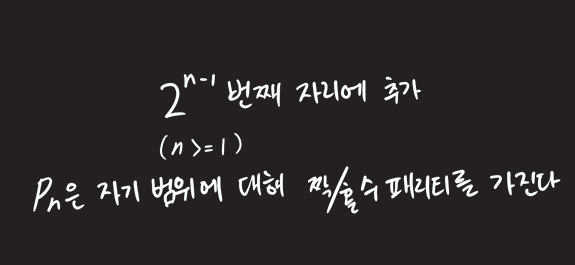 2ⁿ⁻¹ 번째 자리에 추가
(n >= 1)
Pₙ은 자기 범위에 대해 짝/홀수 패리티를 가진다